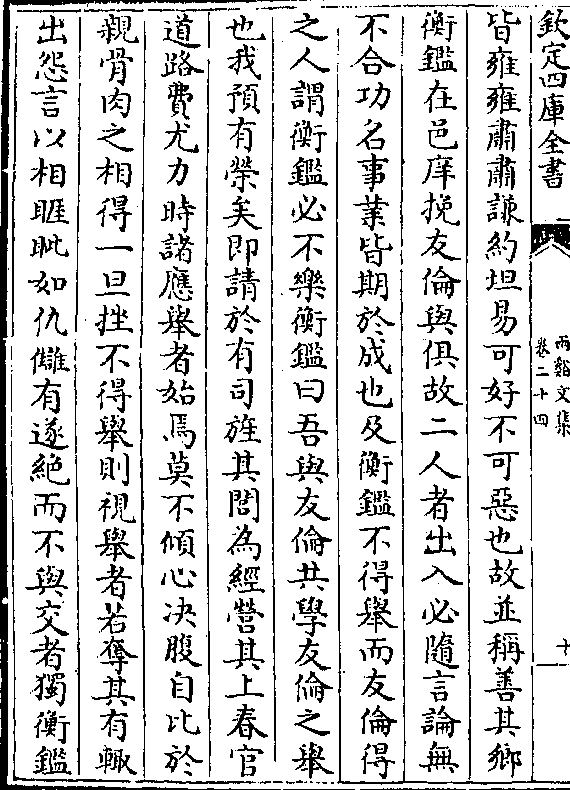 欽定四庫全書
兩谿文集
卷二十四
十
皆雍雍肅肅謙約坦易可好不可惡也故並稱善其鄉
衡鑑在邑庠挽友倫與俱故二人者出入必隨言論無
不合功名事業皆期於成也及衡鑑不得舉而友倫得
之人謂衡鑑必不樂衡鑑曰吾與友倫共學友倫之舉
也我預有榮矣即請於有司旌其閭為經營其上春官
道路費尤力時諸應舉者始焉莫不傾心决腹自比於
親骨肉之相得一旦挫不得舉則視舉者若奪其有輙
出怨言以相睚眦如仇讎有遂絶而不與交者獨衡鑑